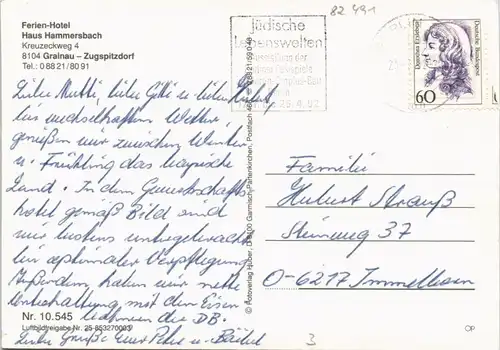 Ferien-Hotel
Haus Hammersbach
Kreuzeckweg 4
8104 Grainau – Zugspitzdorf
Tel.: 0 88 21/80 91
82 491
Jüdische
Lebenswelten
26.4.92
Dorothea Erxleben
Deutsche Bundespost
60
Liebe Mutti, liebe Gitti u. lieber
bei wechselhaftem Wetter,
genießen wir zwischen Winter
u. Frühling das bayrische
Land. In dem Gewerkschafts-
hotel gemäß Bild sind
wir bestens untergebracht
bei optimaler Verpflegung.
Außerdem haben wir nette
Unterhaltung mit den Eisen-
bahnern die DB.
Liebe Grüße Euer Peter u. Bärbel
Familie
Hubert Strauß
Steinweg 37
O-6217 Immelborn
© Fotoverlag Huber, D-8100 Garmisch-Partenkirchen, Postfach
Nr. 10.545
Luftbildfreigabe Nr.
3
OP